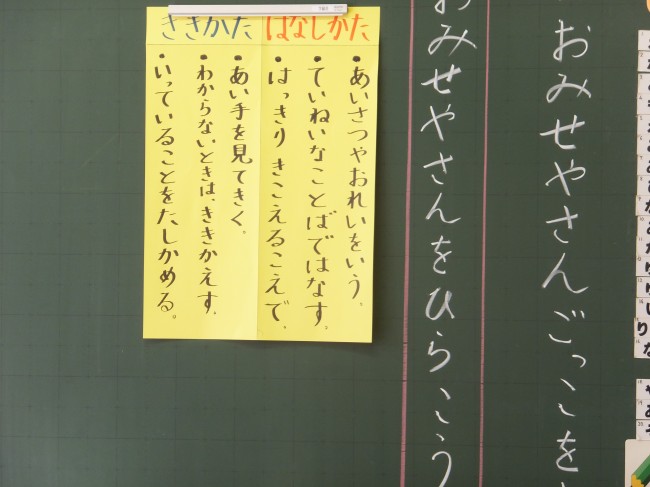 おみせやさんごっこを
おみせやさんをひらこう
はなしかた
・あいさつやおれいをいう。
・ていねいなことばではなす。
・はっきりきこえるこえで。
ききかた
・あい手を見てきく。
・わからないときは、ききかえす。
・いっていることをたしかめる。